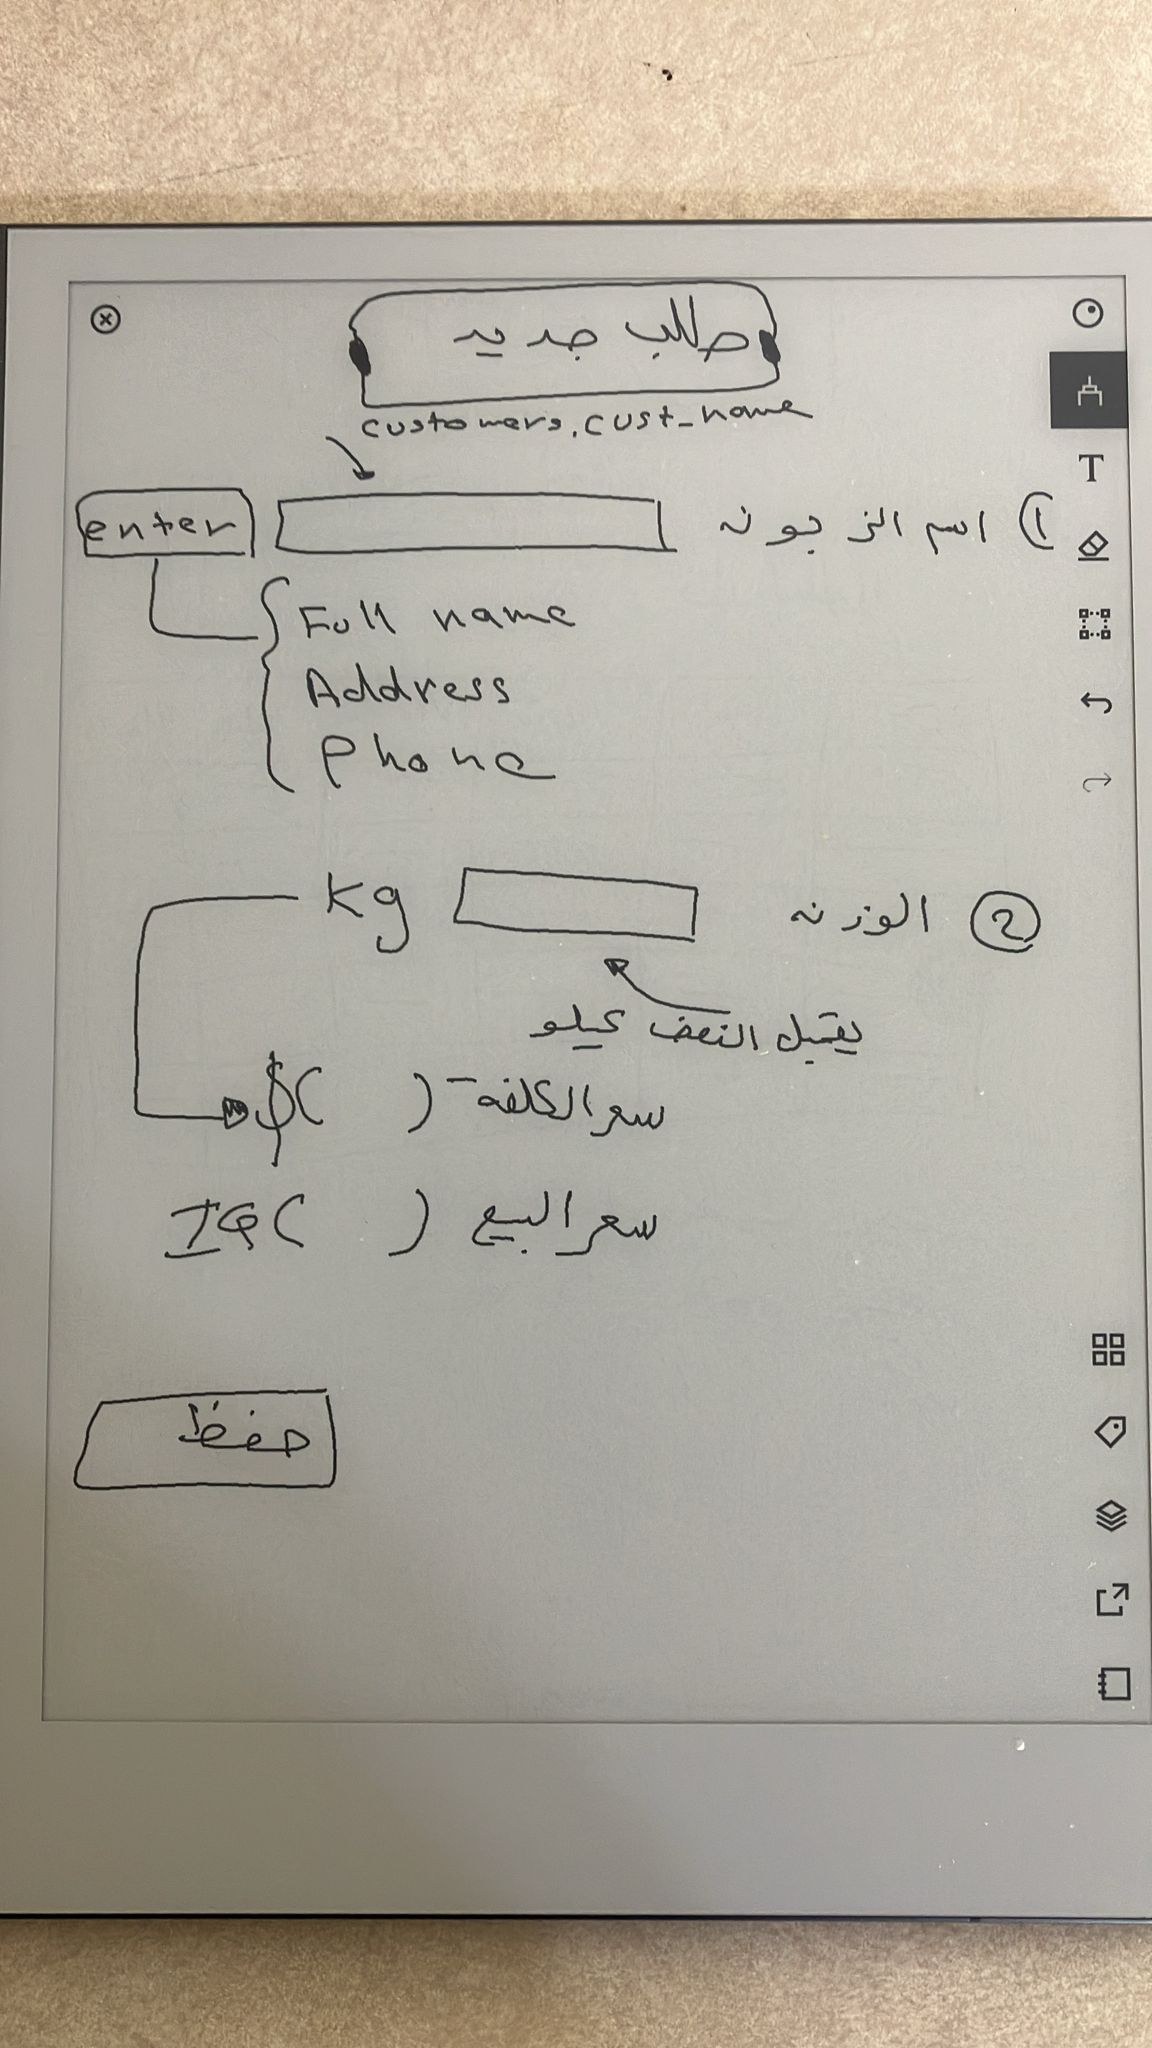 طلب جديد
customers.cust_name
① اسم الزبون
enter
Full name
Address
Phone
② الوزن kg
يقبل النصف كيلو
سعر الكلفة ( )$
سعر البيع ( )IQ
حفظ
T